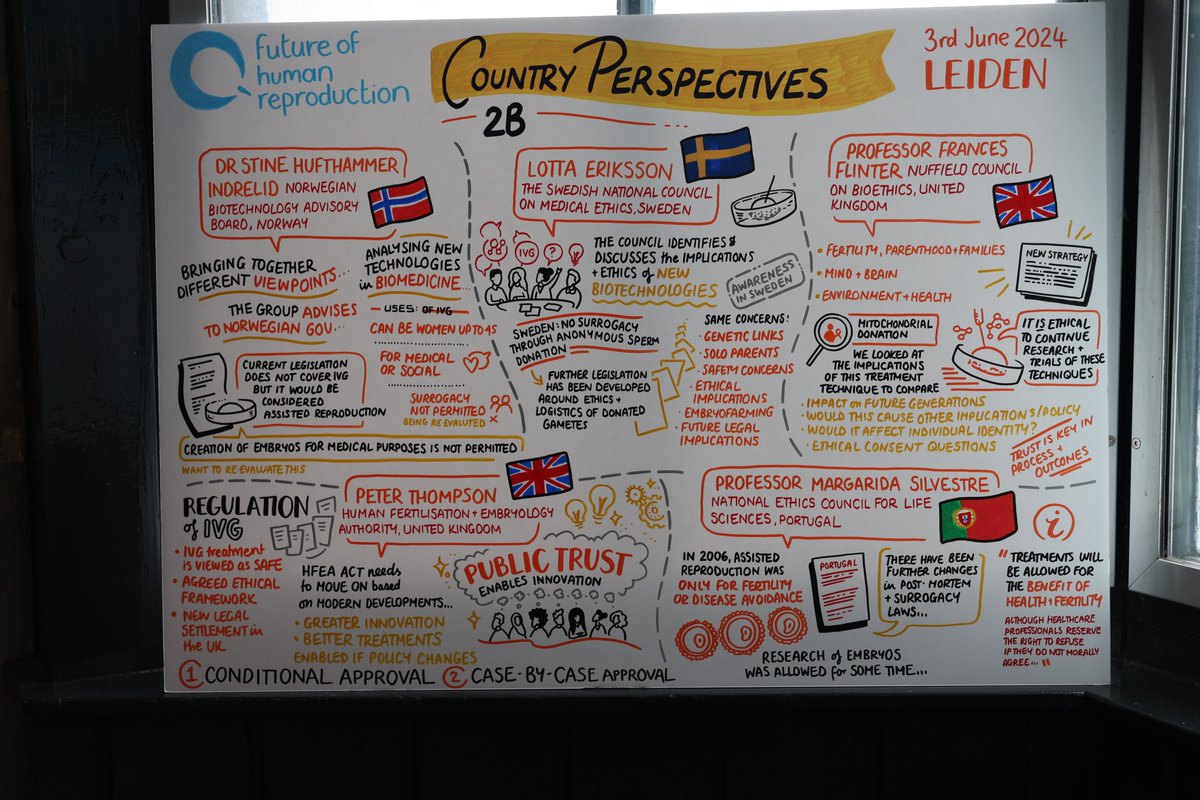 future of
human
reproduction
COUNTRY PERSPECTIVES
2B
3rd June 2024
LEIDEN
DR STINE HUFTHAMMER
INDRELID NORWEGIAN
BIOTECHNOLOGY ADVISORY
BOARD, NORWAY
BRINGING TOGETHER
DIFFERENT VIEWPOINTS...
THE GROUP ADVISES
TO NORWEGIAN GOV...
ANALYSING NEW
TECHNOLOGIES
in BIOMEDICINE...
USES: OF IVG
CAN BE WOMEN UP TO 45
FOR MEDICAL
OR SOCIAL
SURROGACY
NOT PERMITTED
BEING RE-EVALUATED
CURRENT LEGISLATION
DOES NOT COVER IVG
BUT IT WOULD BE
CONSIDERED
ASSISTED REPRODUCTION
CREATION OF EMBRYOS FOR MEDICAL PURPOSES IS NOT PERMITTED
WANT TO RE EVALUATE THIS
LOTTA ERIKSSON
THE SWEDISH NATIONAL COUNCIL
ON MEDICAL ETHICS, SWEDEN
IVG
?
THE COUNCIL IDENTIFIES &
DISCUSSES THE IMPLICATIONS
+ ETHICS of NEW
BIOTECHNOLOGIES
AWARENESS
IN SWEDEN
SWEDEN: NO SURROGACY
THROUGH ANONYMOUS SPERM
DONATION
FURTHER LEGISLATION
HAS BEEN DEVELOPED
AROUND ETHICS +
LOGISTICS OF DONATED
GAMETES
SAME CONCERNS:
• GENETIC LINKS
• SOLO PARENTS
• SAFETY CONCERNS
• ETHICAL
IMPLICATIONS
• EMBRYOFARMING
• FUTURE LEGAL
IMPLICATIONS
PROFESSOR FRANCES
FLINTER NUFFIELD COUNCIL
ON BIOETHICS, UNITED
KINGDOM
• FERTILITY, PARENTHOOD + FAMILIES
• MIND + BRAIN
• ENVIRONMENT + HEALTH
NEW STRATEGY
MITOCHONDRIAL
DONATION
WE LOOKED AT
THE IMPLICATIONS
OF THIS TREATMENT
TECHNIQUE TO COMPARE
IT IS ETHICAL
TO CONTINUE
RESEARCH +
TRIALS OF THESE
TECHNIQUES
• IMPACT on FUTURE GENERATIONS
• WOULD THIS CAUSE OTHER IMPLICATIONS/POLICY
• WOULD IT AFFECT INDIVIDUAL IDENTITY?
• ETHICAL CONSENT QUESTIONS
TRUST IS KEY IN
PROCESS +
OUTCOMES
REGULATION
of IVG
• IVG treatment
is VIEWED as SAFE
• AGREED ETHICAL
FRAMEWORK
• NEW LEGAL
SETTLEMENT in
the UK
PETER THOMPSON
HUMAN FERTILISATION + EMBRYOLOGY
AUTHORITY, UNITED KINGDOM
HFEA ACT needs
to MOVE ON based
on MODERN DEVELOPMENTS...
• GREATER INNOVATION
• BETTER TREATMENTS
ENABLED IF POLICY CHANGES
PUBLIC TRUST
ENABLES INNOVATION
1 CONDITIONAL APPROVAL 2 CASE-BY-CASE APPROVAL
PROFESSOR MARGARIDA SILVESTRE
NATIONAL ETHICS COUNCIL FOR LIFE
SCIENCES, PORTUGAL
IN 2006, ASSISTED
REPRODUCTION WAS
ONLY FOR FERTILITY
OR DISEASE AVOIDANCE
PORTUGAL
THERE HAVE BEEN
FURTHER CHANGES
in POST-MORTEM
+ SURROGACY
LAWS...
RESEARCH of EMBRYOS
WAS ALLOWED for SOME TIME...
i
"TREATMENTS WILL
BE ALLOWED FOR
THE BENEFIT OF
HEALTH + FERTILITY
ALTHOUGH HEALTHCARE
PROFESSIONALS RESERVE
THE RIGHT TO REFUSE
IF THEY DO NOT MORALLY
AGREE..."